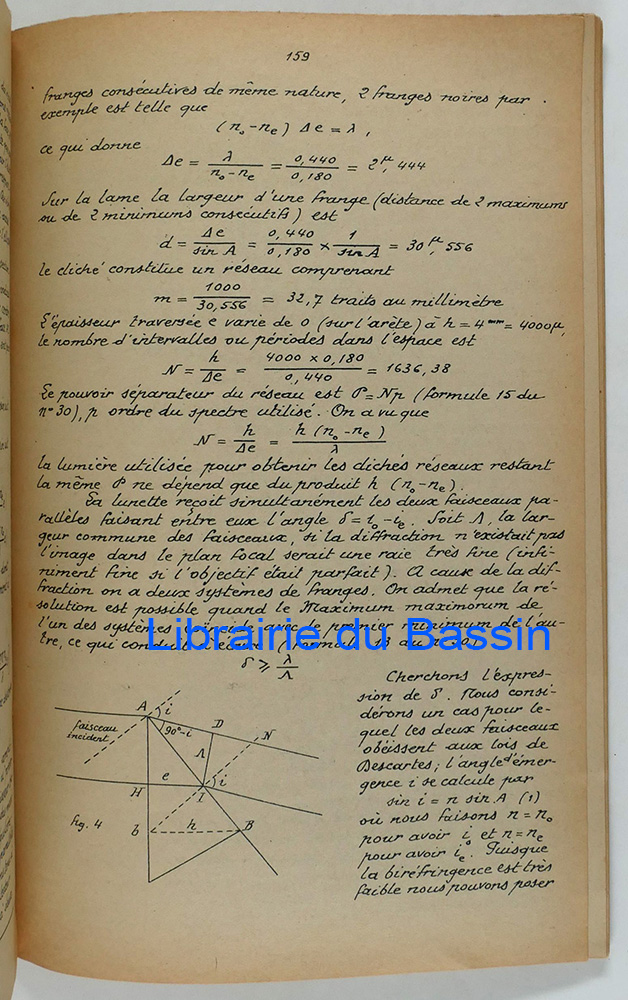 159
franges consécutives de même nature, 2 franges noires par
exemple est telle que
(n₀-nₑ) Δe = λ,
ce qui donne
Δe = λ/(n₀-nₑ) = 0,440/0,180 = 2^μ,444
Sur la lame la largeur d'une frange (distance de 2 maximums
ou de 2 minimums consécutifs) est
d = Δe/sin A = 0,440/0,180 × 1/sin A = 30^μ,556
le cliché constitue un réseau comprenant
m = 1000/30,556 = 32,7 traits au millimètre
L'épaisseur traversée e varie de 0 (sur l'arête) à h = 4^mm = 4000μ,
le nombre d'intervalles ou périodes dans l'espace est
N = h/Δe = 4000 × 0,180/0,440 = 1636,38
Le pouvoir séparateur du réseau est P = Np (formule 15 du
n° 30), p ordre du spectre utilisé. On a vu que
N = h/Δe = h(n₀-nₑ)/λ
la lumière utilisée pour obtenir les clichés réseaux restant
la même P ne dépend que du produit h (n₀-nₑ).
La lunette reçoit simultanément les deux faisceaux pa-
rallèles faisant entre eux l'angle δ = i₀-iₑ. Soit Λ, la lar-
geur commune des faisceaux, si la diffraction n'existait pas
l'image dans le plan focal serait une raie très fine (infi-
niment fine si l'objectif était parfait). A cause de la dif-
fraction on a deux systèmes de franges. On admet que la ré-
solution est possible quand le Maximum maximorum de
l'un des systèmes coïncide avec le premier minimum de l'au-
tre, ce qui conduit
Librairie du Bassin
δ ⩾ λ/Λ
Cherchons l'expres-
sion de δ. Nous consi-
dérons un cas pour le-
quel les deux faisceaux
obéissent aux lois de
Descartes; l'angle d'émer-
gence i se calcule par
sin i = n sin A (1)
où nous faisons n = n₀
pour avoir i₀ et n = nₑ
pour avoir iₑ. Puisque
la biréfringence est très
faible nous pouvons poser
A
i
faisceau
incident
90°-i
D
N
Λ
e
i
H
I
fig. 4
b
h
B